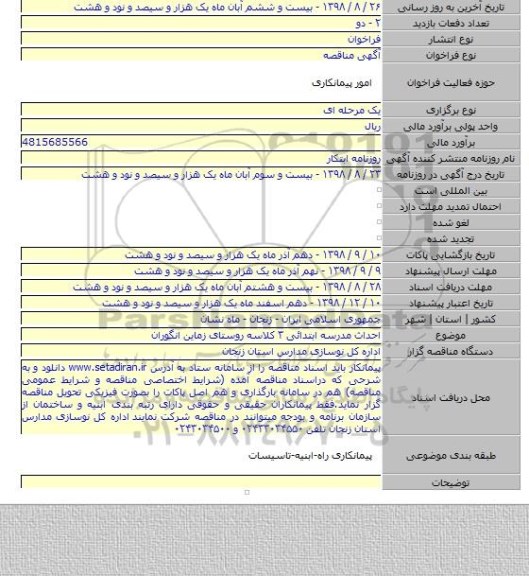 تاریخ آخرین به روز رسانی ۲۶ / ۸ / ۱۳۹۸ - بیست و ششم آبان ماه یک هزار و سیصد و نود و هشت
تعداد دفعات بازدید ۲ - دو
نوع انتشار فراخوان
نوع فراخوان آگهی مناقصه
حوزه فعالیت فراخوان امور پیمانکاری
نوع برگزاری یک مرحله ای
واحد پولی برآورد مالی ریال
برآورد مالی 4815685566
نام روزنامه منتشر کننده آگهی روزنامه ابتکار
تاریخ درج آگهی در روزنامه ۲۳ / ۸ / ۱۳۹۸ - بیست و سوم آبان ماه یک هزار و سیصد و نود و هشت
بین المللی است
احتمال تمدید مهلت دارد
لغو شده
تجدید شده
تاریخ بازگشایی پاکات ۱۰ / ۹ / ۱۳۹۸ - دهم آذر ماه یک هزار و سیصد و نود و هشت
مهلت ارسال پیشنهاد ۹ / ۹ / ۱۳۹۸ - نهم آذر ماه یک هزار و سیصد و نود و هشت
مهلت دریافت اسناد ۲۸ / ۸ / ۱۳۹۸ - بیست و هشتم آبان ماه یک هزار و سیصد و نود و هشت
تاریخ اعتبار پیشنهاد ۱۰ / ۱۲ / ۱۳۹۸ - دهم اسفند ماه یک هزار و سیصد و نود و هشت
کشور | استان | شهر جمهوری اسلامی ایران - زنجان - ماه نشان
موضوع احداث مدرسه ابتدائی ۳ کلاسه روستای زماین انگوران
دستگاه مناقصه گزار اداره کل نوسازی مدارس استان زنجان
محل دریافت اسناد پیمانکار باید اسناد مناقصه را از سامانه ستاد به آدرس www.setadiran.ir دانلود و به
شرحی که دراسناد مناقصه آمده (شرایط اختصاصی مناقصه و شرایط عمومی
مناقصه) هم در سامانه بارگذاری و هم اصل پاکات را بصورت فیزیکی تحویل مناقصه
گزار نماید.فقط پیمانکاران حقیقی و حقوقی دارای رتبه بندی ابنیه و ساختمان از
سازمان برنامه و بودجه میتوانند در مناقصه شرکت نمایند اداره کل نوسازی مدارس
استان زنجان تلفن ۰۲۴۳۳۰۳۴۵۵۰ و ۰۲۴۳۰۳۴۵۰۰
طبقه بندی موضوعی پیمانکاری راه-ابنیه-تاسیسات
توضیحات